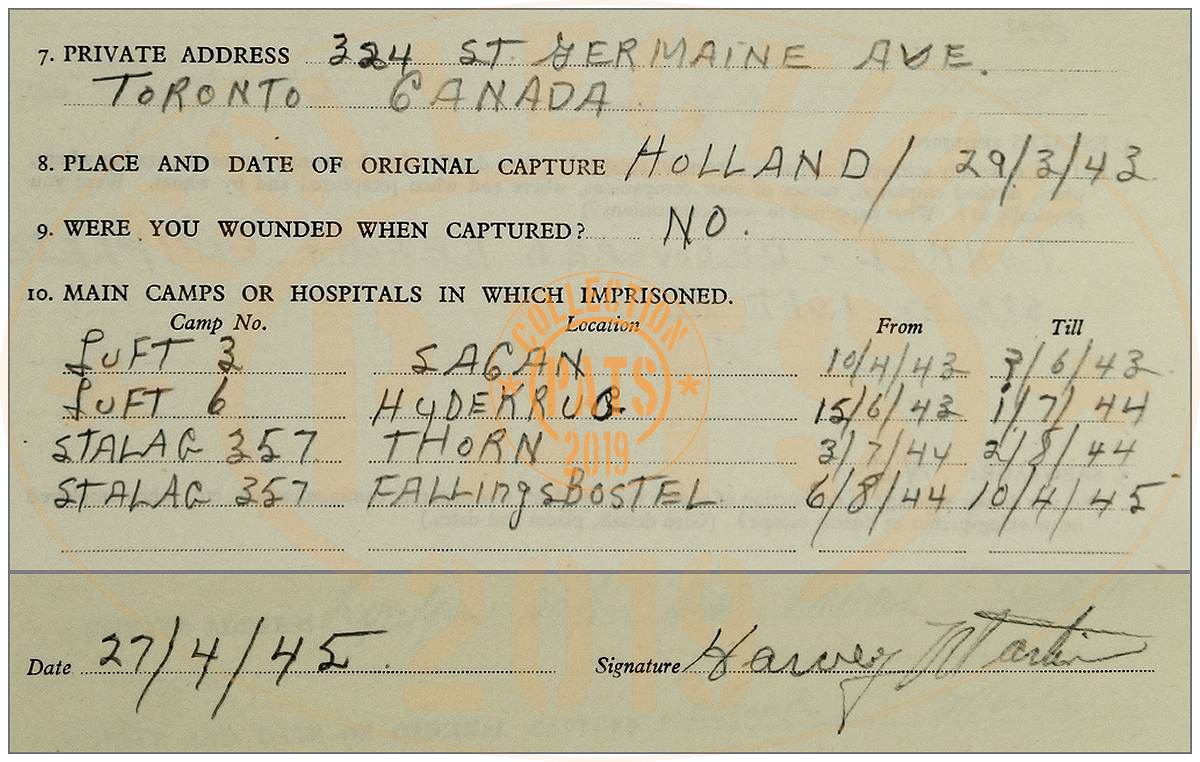 7. PRIVATE ADDRESS 324 ST. GERMAINE AVE.
TORONTO CANADA.
8. PLACE AND DATE OF ORIGINAL CAPTURE HOLLAND / 29/3/43.
9. WERE YOU WOUNDED WHEN CAPTURED? NO.
10. MAIN CAMPS OR HOSPITALS IN WHICH IMPRISONED.
Camp No. Location From Till
LUFT 3 SAGAN 10/4/43 3/6/43
LUFT 6 HYDEKRUG. 15/6/43 1/7/44
STALAG 357 THORN 3/7/44 2/8/44
STALAG 357 FALLINgSBOSTEL 6/8/44 10/4/45
COLLECTION
PATS
2019
Date 27/4/45. Signature Harvey Martin